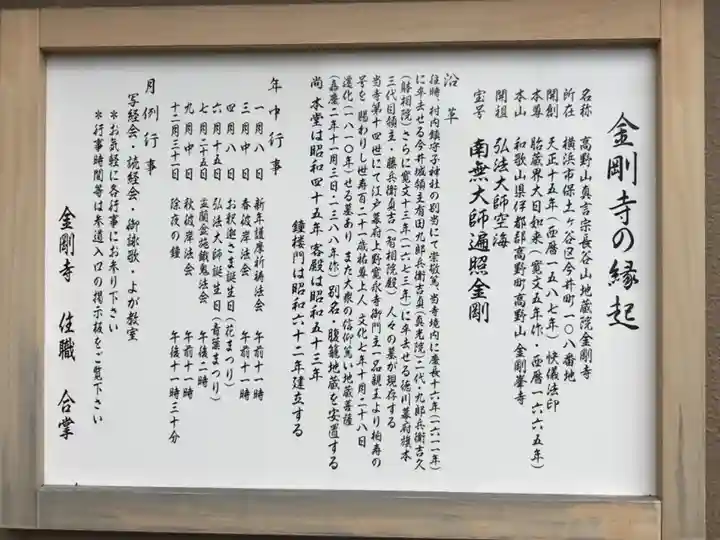 金剛寺の縁起
名称 高野山真言宗長谷山地蔵院金剛寺
所在 横浜市保土ヶ谷区今井町一〇八番地
開創 天正十五年（西暦一五八七年）快儀法印
本尊 胎蔵界大日如来（寛文五年作・西暦一六六五年）
本山 和歌山県伊都郡高野町高野山 金剛峯寺
開祖 弘法大師空海
宝号 南無大師遍照金剛
沿革
往時、村内鎮守子神社の別当にて崇敬篤、当寺境内に慶長十六年（一六一一年）
に卒去せる今井城領主有田九郎兵衛吉貞（真光院）二代・九郎兵衛吉久
（勝相院）さらに寛文十三年（一六七三年）に卒去せる徳川幕府旗本
三代目領主・藤兵衛貞吉（智相院殿）人々の墓が現存する
当寺第十四世にて江戸幕府上野寛永寺御門主一品親王より柏寿の
号を賜わりし世寿百二十一歳祐尊上人 文化七年十月二十八日
遷化（一八一〇年）せる墓あり また大衆の信仰篤い地蔵菩薩
（嘉慶二年十一月三日・一三八八年作）別名・腹籠地蔵を安置する
尚 本堂は昭和四十五年 客殿は昭和五十三年
鐘楼門は昭和六十二年建立する
年中行事
一月八日 新年護摩祈祷法会 午前十一時
三月中日 春彼岸法会 午前十一時
四月八日 お釈迦さま誕生日（花まつり）
六月十五日 弘法大師誕生日（青葉まつり）
七月二十五日 盂蘭盆施餓鬼法会 午後二時
九月中日 秋彼岸法会 午前十一時
十二月三十一日 除夜の鐘 午後十一時三十分
月例行事
写経会・読経会・御詠歌・よが教室
＊お気軽に各行事にお参り下さい
＊行事時間等は参道入口の掲示板をご覧下さい
金剛寺 住職 合掌